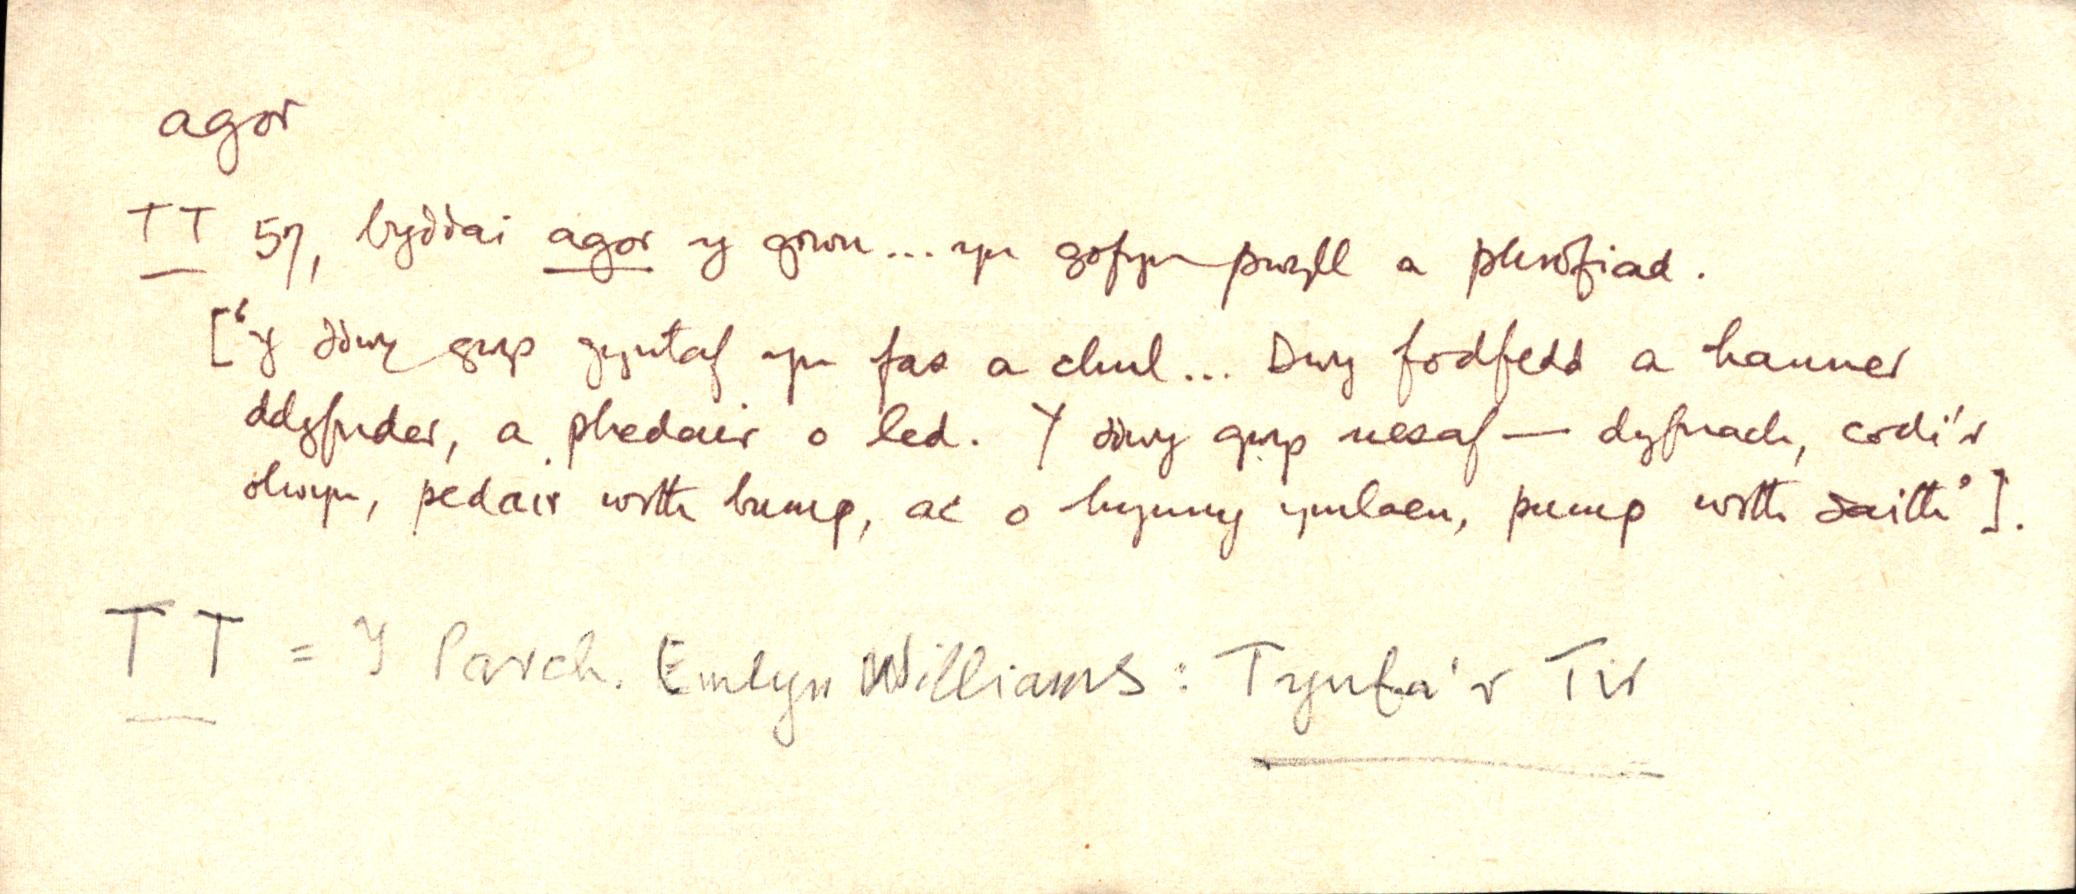 agor
TT 57, byddai agor y grwn... yn gofyn pwyll a phrofiad.
['Y ddwy gwys gyntaf yn fas a chul... Dwy fodfedd a hanner
ddyfnder, a phedair o led. Y ddwy gwys nesaf — dyfnach, codi'r
olwyn, pedair wrth bump, ac o hynny ymlaen, pump wrth saith'].
TT = Y Parch. Emlyn Williams: Tynfa'r Tir